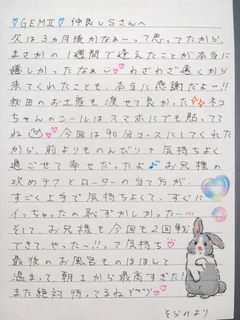 ♡GEMⅡ♡ 仲良しSさんへ
次は3ヵ月後かなぁーって思ってたから、
まさかの1週間で逢えたことが本当に
嬉しかったなぁ♡ わざわざ遠くから
来てくれたことも、本当に感謝だよー!!
秋田のお土産も渡せて良かった ネコ
ちゃんのシールはスマホにでも貼ってて
ね 今回は90分コースにしてくれた
から、前よりものんびり+気持ちよく
過ごせて幸せだったよ♪ お兄様の
攻めテクとローターの当て方が
すごく上手で気持ちよくて、すぐに
イっちゃったの恥ずかしかった…!!!
そして、お兄様も今回も2回戦
できて、やったー!!って気持ち
最後のお風呂ものほほんと
温まって、朝1から最高すぎた!!
また絶対待ってるね
そらのより